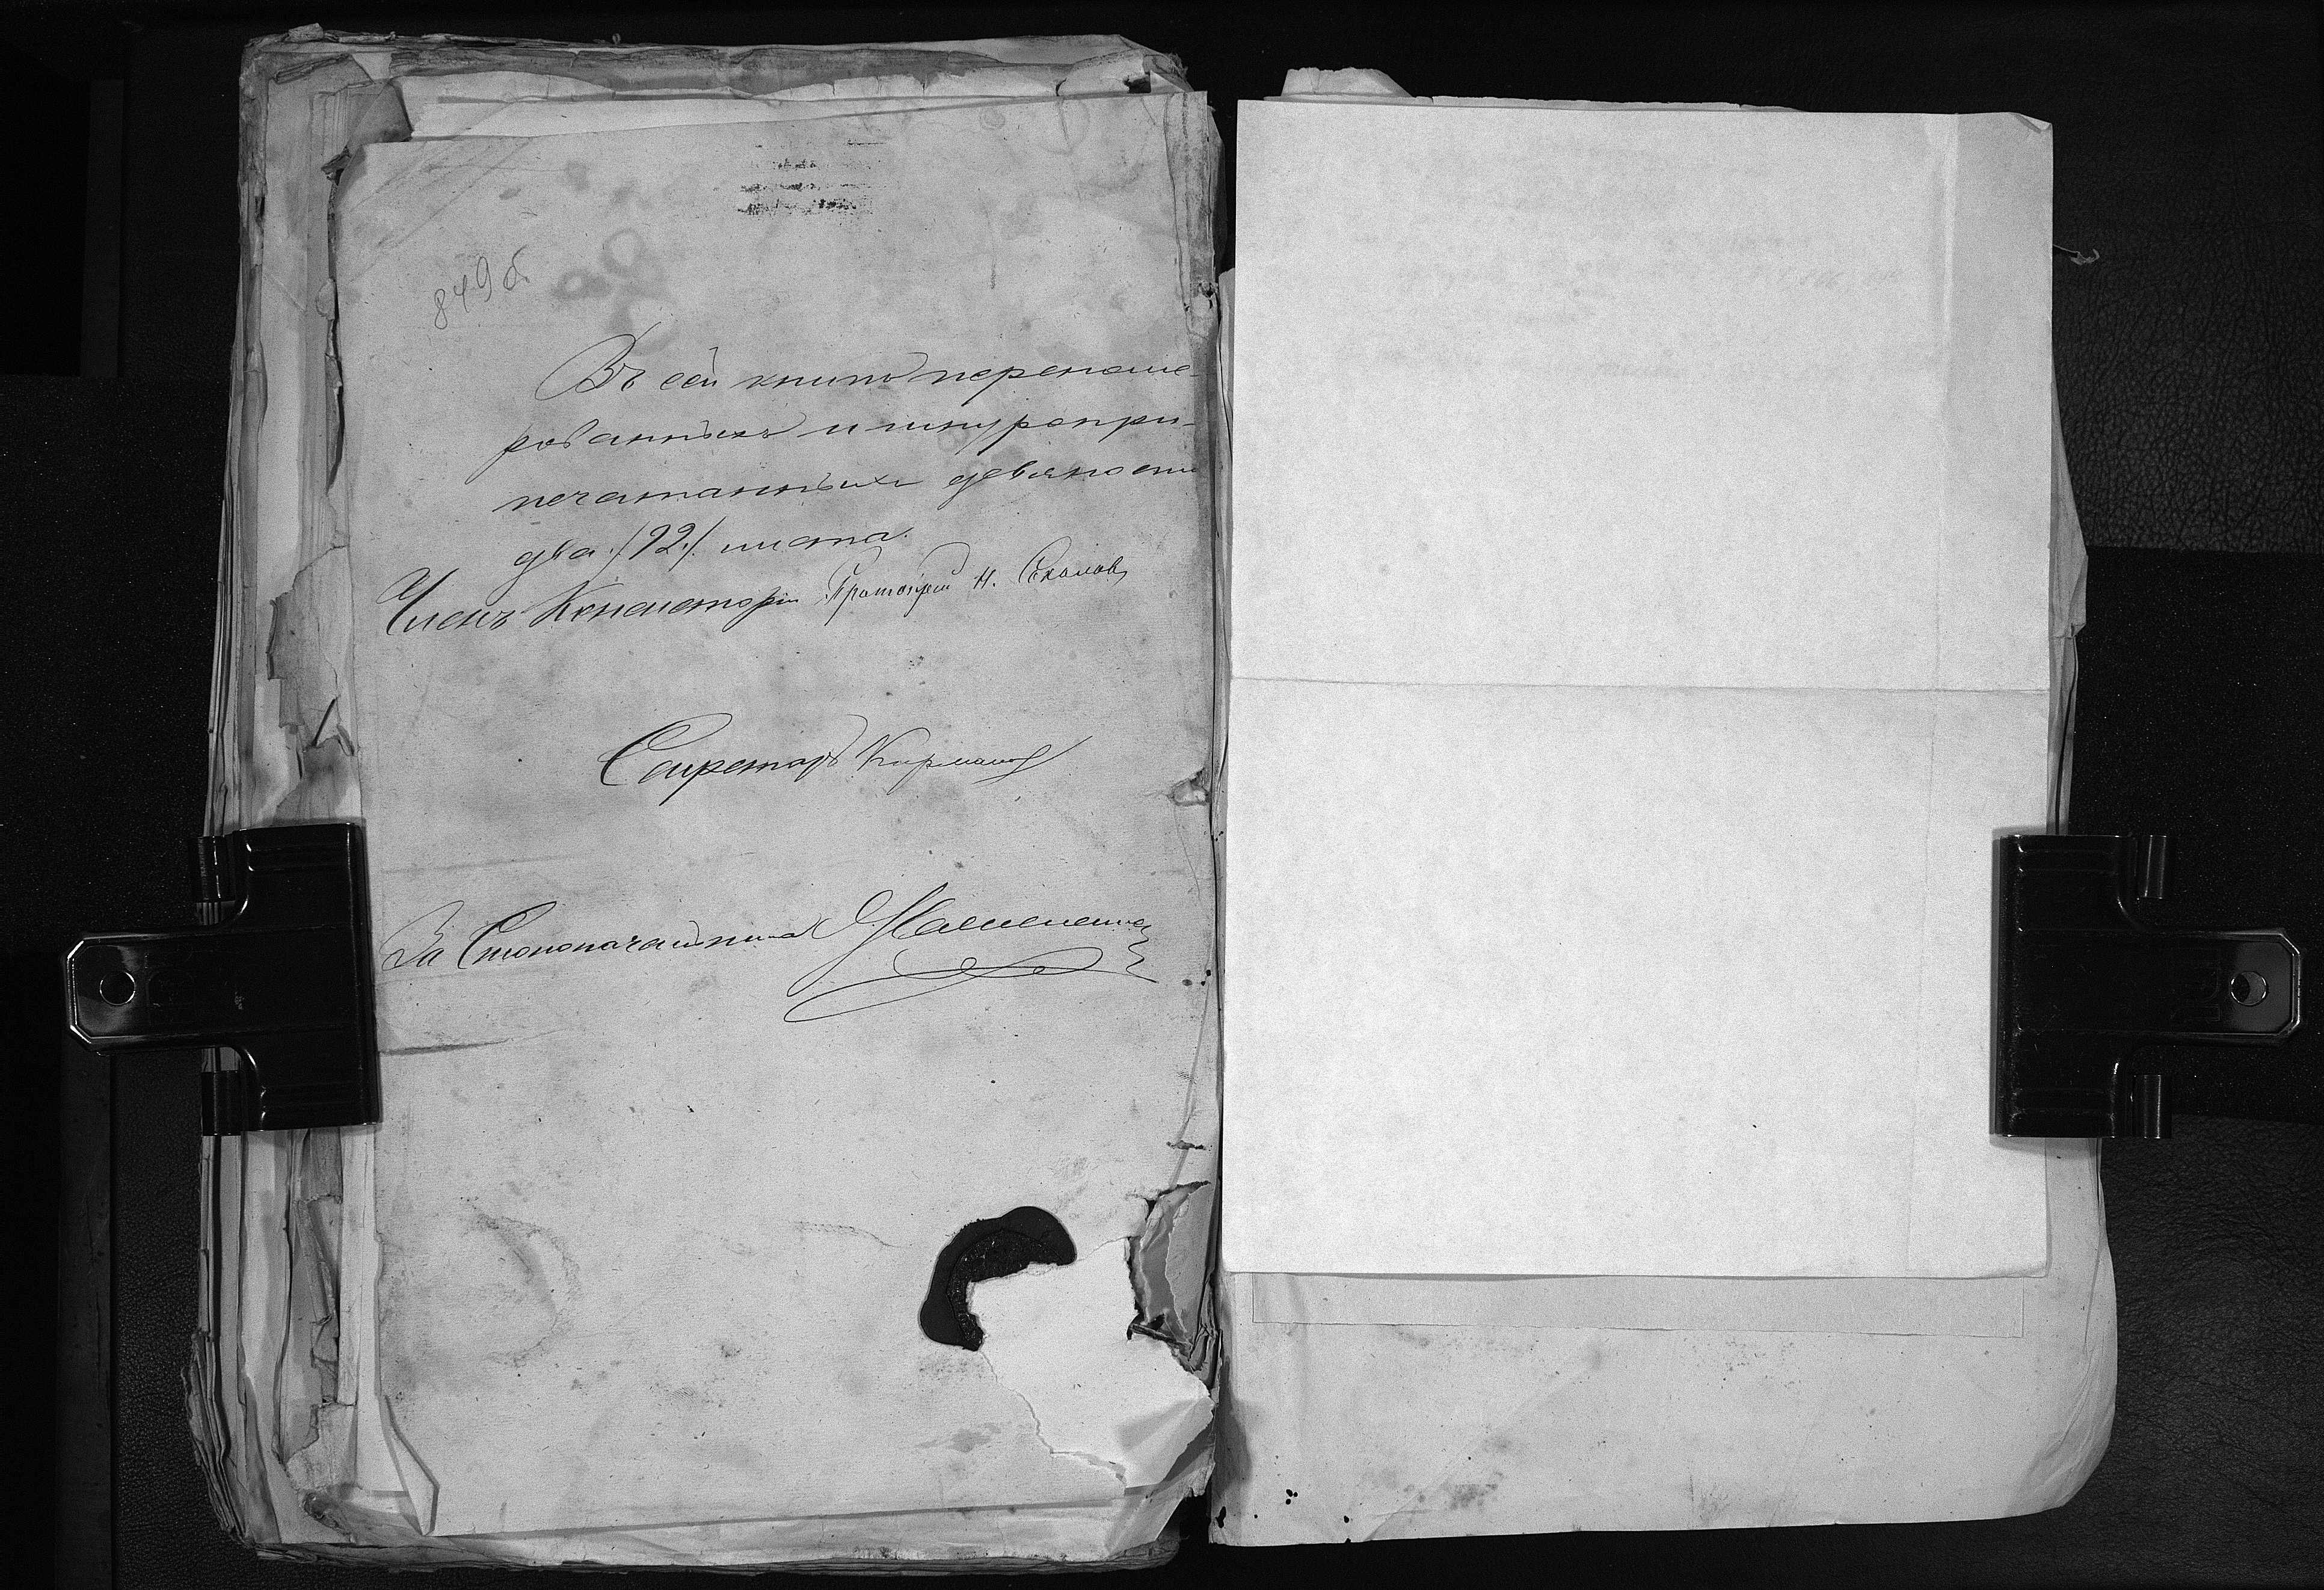 849 об.
Въ сей книгѣ перенуме-
рованныхъ и шнуропри-
печатанныхъ девяносто
два /92./ листа.
Членъ Консисторіи Протоіерей Н. Соколовъ
Секретарь
За Столоначальника